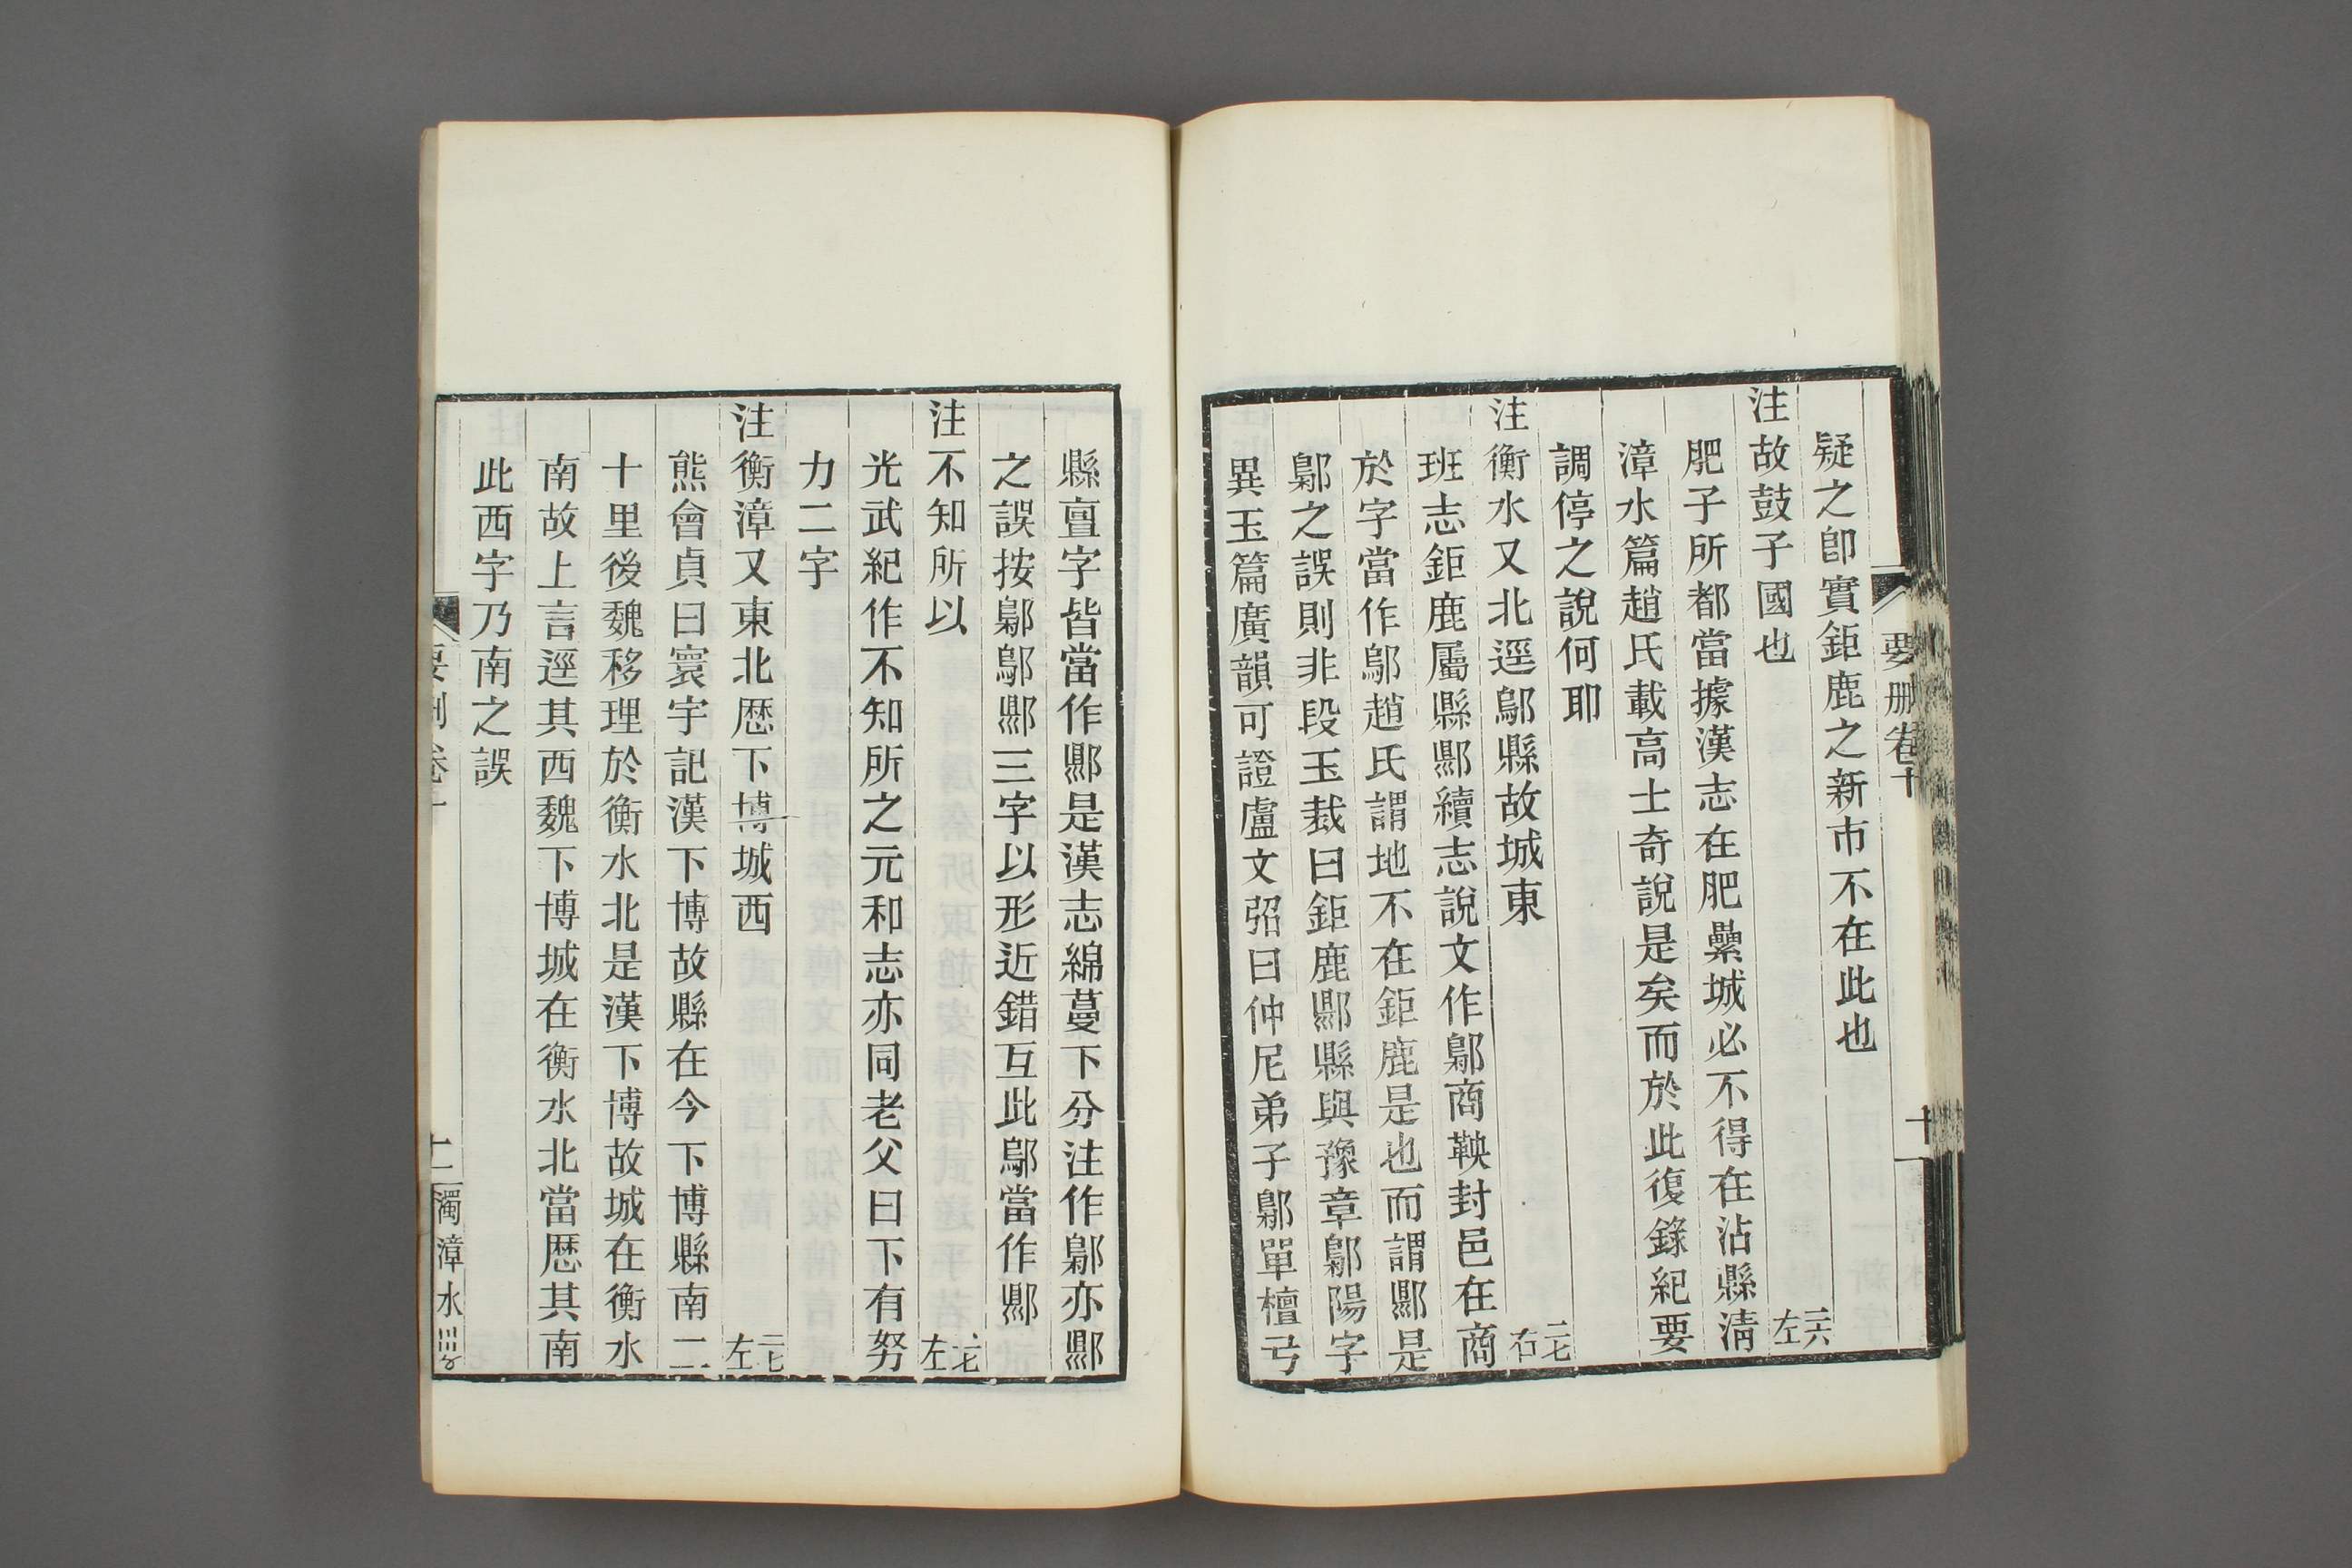 要刪卷十
十一
疑之卽實鉅鹿之新市不在此也
注故鼓子國也 二六左
肥子所都當據漢志在肥纍城必不得在沾縣淸
漳水篇趙氏載高士奇說是矣而於此復錄紀要
調停之說何耶
注衡水又北逕鄔縣故城東 二七右
班志鉅鹿屬縣鄡續志說文作鄥商鞅封邑在商
於字當作鄔趙氏謂地不在鉅鹿是也而謂鄡是
鄥之誤則非段玉裁曰鉅鹿鄡縣與豫章鄥陽字
異玉篇廣韻可證盧文弨曰仲尼弟子鄥單檀弓
縣亶字皆當作鄡是漢志綿蔓下分注作鄥亦鄡
之誤按鄥鄔鄡三字以形近錯互此鄔當作鄡
注不知所以 二七左
光武紀作不知所之元和志亦同老父曰下有努
力二字
注衡漳又東北歷下博城西 二七左
熊會貞曰寰宇記漢下博故縣在今下博縣南二
十里後魏移理於衡水北是漢下博故城在衡水
南故上言逕其西魏下博城在衡水北當歷其南
此西字乃南之誤
要刪卷十
十二 濁漳水